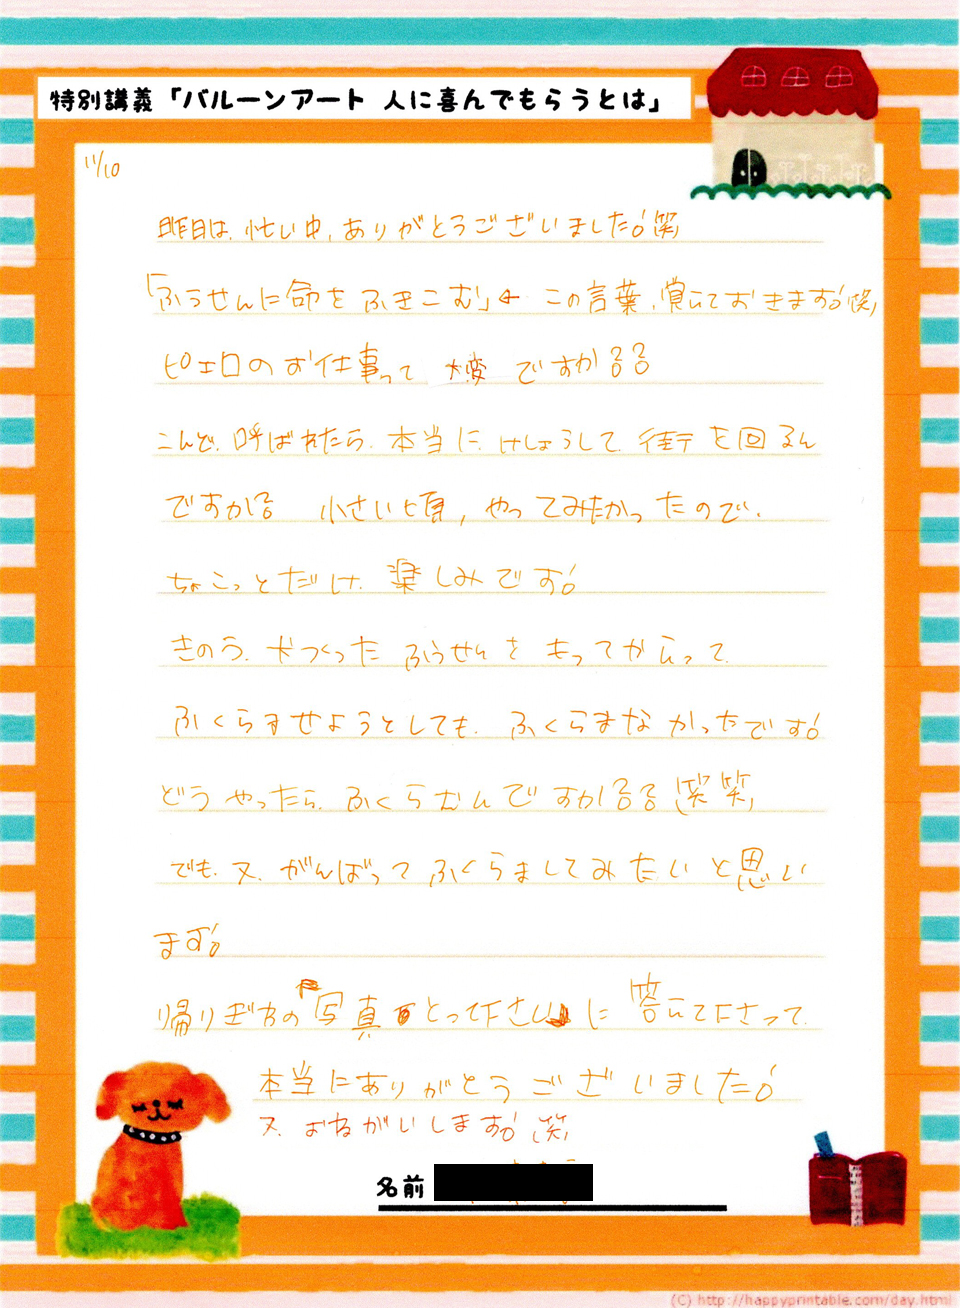 特別講義「バルーンアート 人に喜んでもらうとは」
11/10
昨日は、忙しい中、ありがとうございました!笑
「ふうせんに命をふきこむ」← この言葉、覚えておきます!笑
ピエロのお仕事って 大変 ですか??
こんど、呼ばれたら、本当に、けしょうして、街を回るん
ですか? 小さい頃、やってみたかったので、
ちょこっとだけ、楽しみです!
きのう、犬つくったふうせんをもってかえって、
ふくらませようとしても、ふくらまなかったです!
どうやったら、ふくらむんですか??笑笑
でも、又、がんばってふくらましてみたいと思い
ます!
帰りぎわの「写真とって下さい」に答えて下さって、
本当にありがとうございました!
又、おねがいします!笑
名前
(C) http://happyprintable.com/day.html